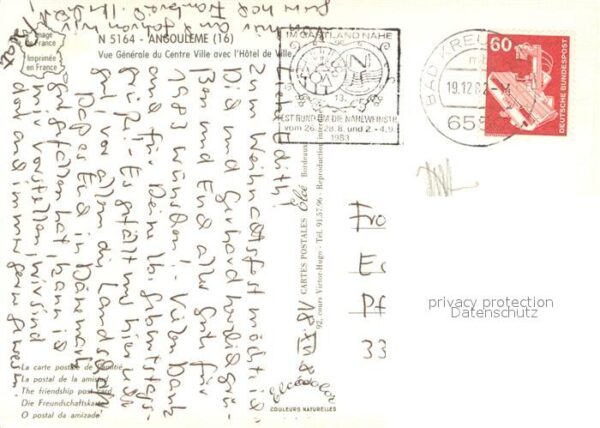 Image de France
Imprimée en France
N 5164 - ANGOULEME (16)
Vue Générale du Centre Ville avec l'Hôtel de Ville
Liebe Edith!
Zum Weihnachtsfest möchte ich
Dich und Gerhard herzlich grü-
ßen und Euch alles Gute für
1983 wünschen! Vielen Dank
auch für Deine lb. Geburtstags-
grüße! Es gefällt mir hier sehr
gut, vor allem die Landschaft.
Daß es Euch in Dänemark
gut gefallen hat, kann ich
mir vorstellen, wir sind
dort auch immer gern gewesen.
La carte postale de l'amitié
La postal de la amistad
The friendship post card
Die Freundschaftskarte
O postal da amizade
CARTES POSTALES Elcé Bordeaux
92, cours Victor-Hugo - Tél. 91.57.96 - Reproduction
Elcécolor
COULEURS NATURELLES
IM GASTLAND NAHE
FEST RUND UM DIE NAHEWEINSTR.
vom 26.-28.8. und 2.-4.9.
1983
BAD KREU
19.12.82
655
60
DEUTSCHE BUNDESPOST
Fr
E
Pf
33
privacy protection
Datenschutz